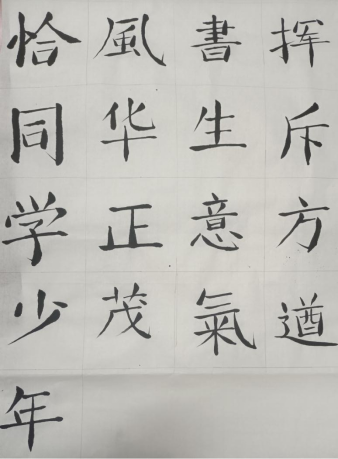 恰同学少年
風华正茂
書生意氣
挥斥方遒